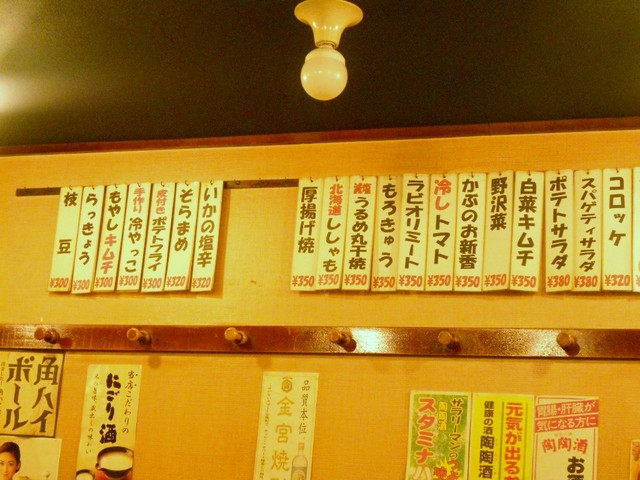 枝豆
¥300
らっきょう
¥300
もやしキムチ
¥300
手作り冷やっこ
¥300
皮付きポテトフライ
¥300
そらまめ
¥320
いかの塩辛
¥320
厚揚げ焼
¥350
北海道ししゃも
¥350
減塩うるめ丸干焼
¥350
もろきゅう
¥350
ラビオリミート
¥350
冷しトマト
¥350
かぶのお新香
¥350
野沢菜
¥350
白菜キムチ
¥350
ポテトサラダ
¥380
スパゲティサラダ
¥380
コロッケ
¥320
角ハイ
ボール
当店こだわりの
にごり酒
品質本位
金宮焼
サラリーマンの
スタミナ
元気が出る
健康の酒
陶陶酒
胃腸・肝臓が
気になる方に
陶陶酒
お酒